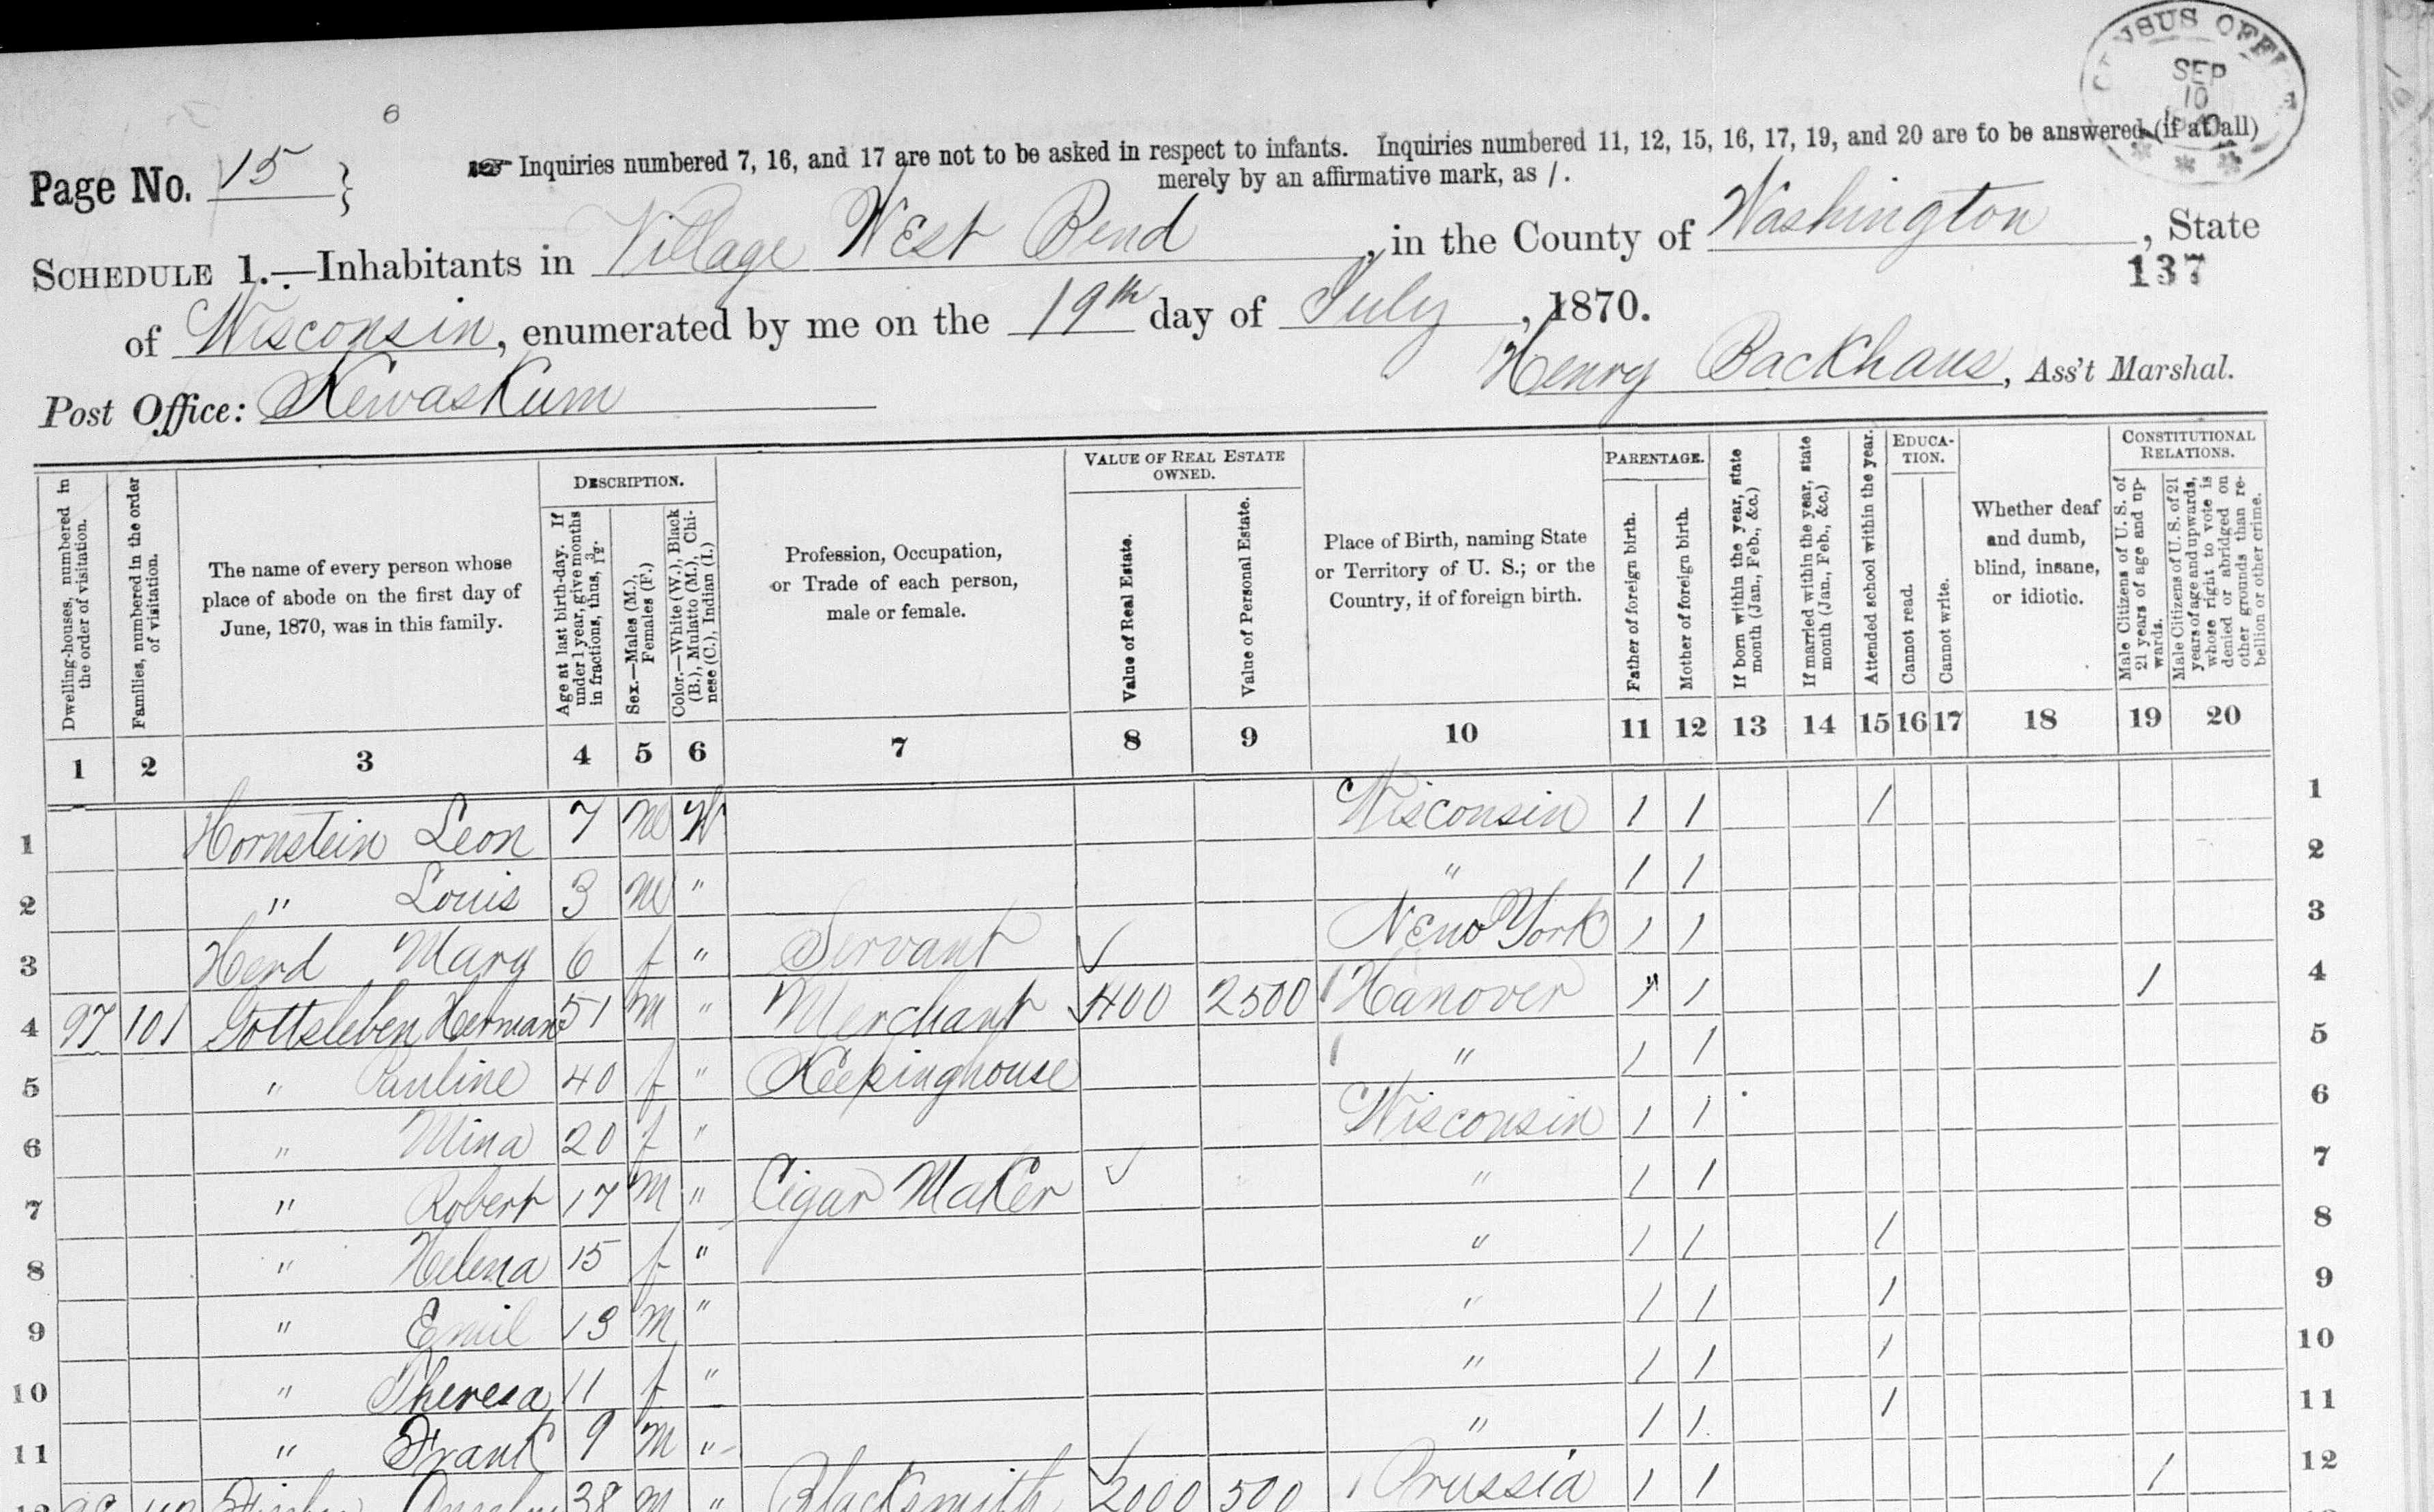 CENSUS OFFICE
SEP
10
6
Page No. 15 }
Inquiries numbered 7, 16, and 17 are not to be asked in respect to infants. Inquiries numbered 11, 12, 15, 16, 17, 19, and 20 are to be answered (if at all)
merely by an affirmative mark, as /.
SCHEDULE 1.—Inhabitants in Village West Bend, in the County of Washington, State
137
of Wisconsin, enumerated by me on the 19th day of July, 1870.
Post Office: Kewaskum Henry Backhaus, Ass't Marshal.
Dwelling-houses, numbered in the order of visitation.
Families, numbered in the order of visitation.
The name of every person whose place of abode on the first day of June, 1870, was in this family.
DESCRIPTION.
Age at last birth-day. If under 1 year, give months in fractions, thus, 3/12.
Sex.—Males (M.), Females (F.)
Color.—White (W.), Black (B.), Mulatto (M.), Chinese (C.), Indian (I.)
Profession, Occupation, or Trade of each person, male or female.
VALUE OF REAL ESTATE OWNED.
Value of Real Estate.
Value of Personal Estate.
Place of Birth, naming State or Territory of U. S.; or the Country, if of foreign birth.
PARENTAGE.
Father of foreign birth.
Mother of foreign birth.
If born within the year, state month (Jan., Feb., &c.)
If married within the year, state month (Jan., Feb., &c.)
Attended school within the year.
EDUCATION.
Cannot read.
Cannot write.
Whether deaf and dumb, blind, insane, or idiotic.
CONSTITUTIONAL RELATIONS.
Male Citizens of U. S. of 21 years of age and upwards.
Male Citizens of U. S. of 21 years of age and upwards, whose right to vote is denied or abridged on other grounds than rebellion or other crime.
1 2 3 4 5 6 7 8 9 10 11 12 13 14 15 16 17 18 19 20
1 Hornstein Leon 7 M W Wisconsin / / / 1
2 " Louis 3 M " " / / 2
3 Herd Mary 6 f " Servant ✓ New York / / 3
4 97 101 Gottsleben Herman 51 M " Merchant ✓ 400 2500 Hanover / / / 4
5 " Pauline 40 f " Keepinghouse " / / 5
6 " Mina 20 f " Wisconsin / / 6
7 " Robert 17 M " Cigar Maker ✓ " / / 7
8 " Helena 15 f " " / / / 8
9 " Emil 13 M " " / / / 9
10 " Theresa 11 f " " / / / 10
11 " Frank 9 M " " / / / 11
38 M " Blacksmith ✓ 2000 500 Prussia / / / 12